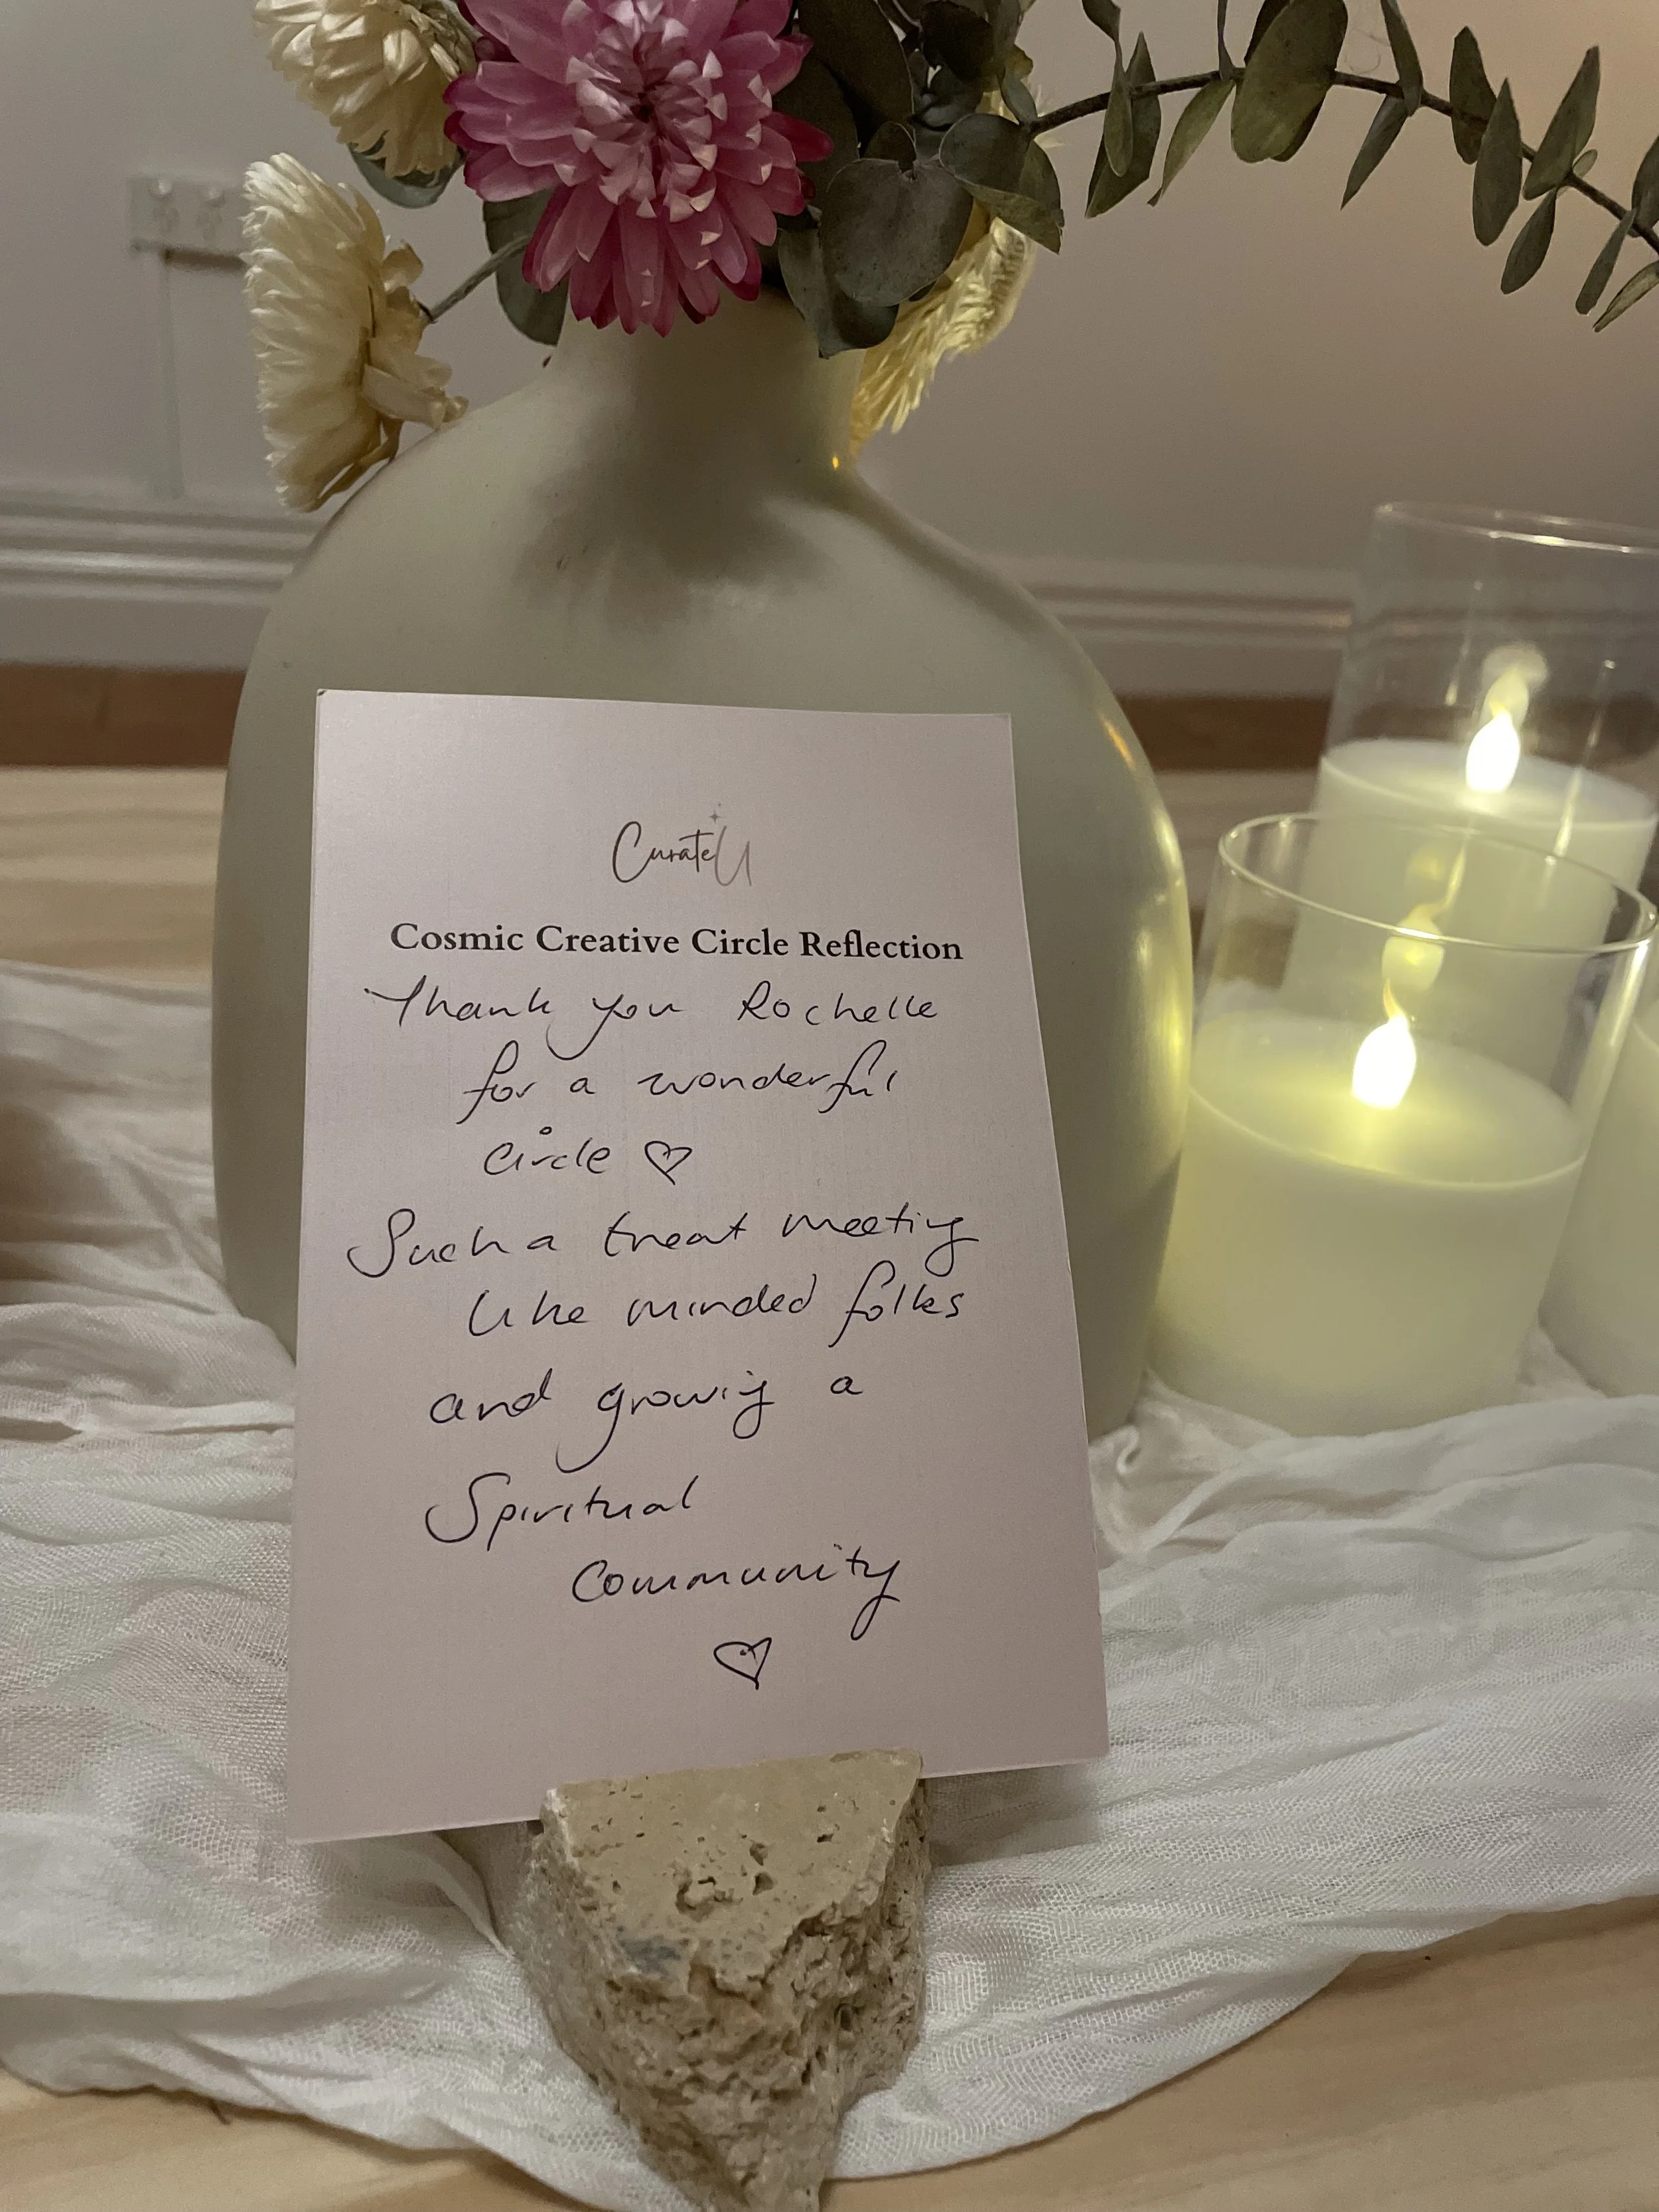 CurateU
Cosmic Creative Circle Reflection
Thank you Rochelle
for a wonderful
circle ♡
Such a treat meeting
like minded folks
and growing a
Spiritual
community
♡